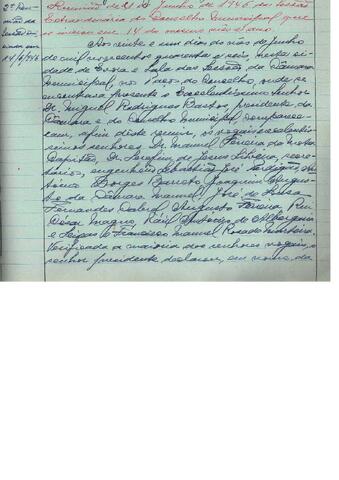 2ª Reu-
nião da
Sessão
em
14/6/946
Reunião de 21 de Junho de 1946 da Sessão
Extraordinária do Conselho Municipal que
se iniciou em 14 do mesmo mês e ano.
Aos vinte e um dias do mês de Junho
de mil novecentos quarenta e seis, nesta ci-
dade de Évora e Sala das Sessões da Câmara
Municipal, nos Paços do Concelho, onde se
encontrava presente o Excelentíssimo Senhor
Dr. Miguel Rodrigues Bastos, presidente da
Câmara e do Conselho Municipal, compareceram,
a fim de se reunir, os vogais excelentís-
simos senhores Dr. Manuel Ferreira da
Capitão, Dr. Serafim de Jesus Silveira, secre-
tários, engenheiro José Perdigão, An-
tónio Borges Barreto, Joaquim
da Câmara Manuel, José de
Fernandes, Gabriel Augusto Ferreira, Rui
César Magro, Raúl António de Albergaria
e Seixas e Francisco Manuel Rosado
Verificada a maioria dos senhores vogais, o
senhor presidente declarou, em nome da